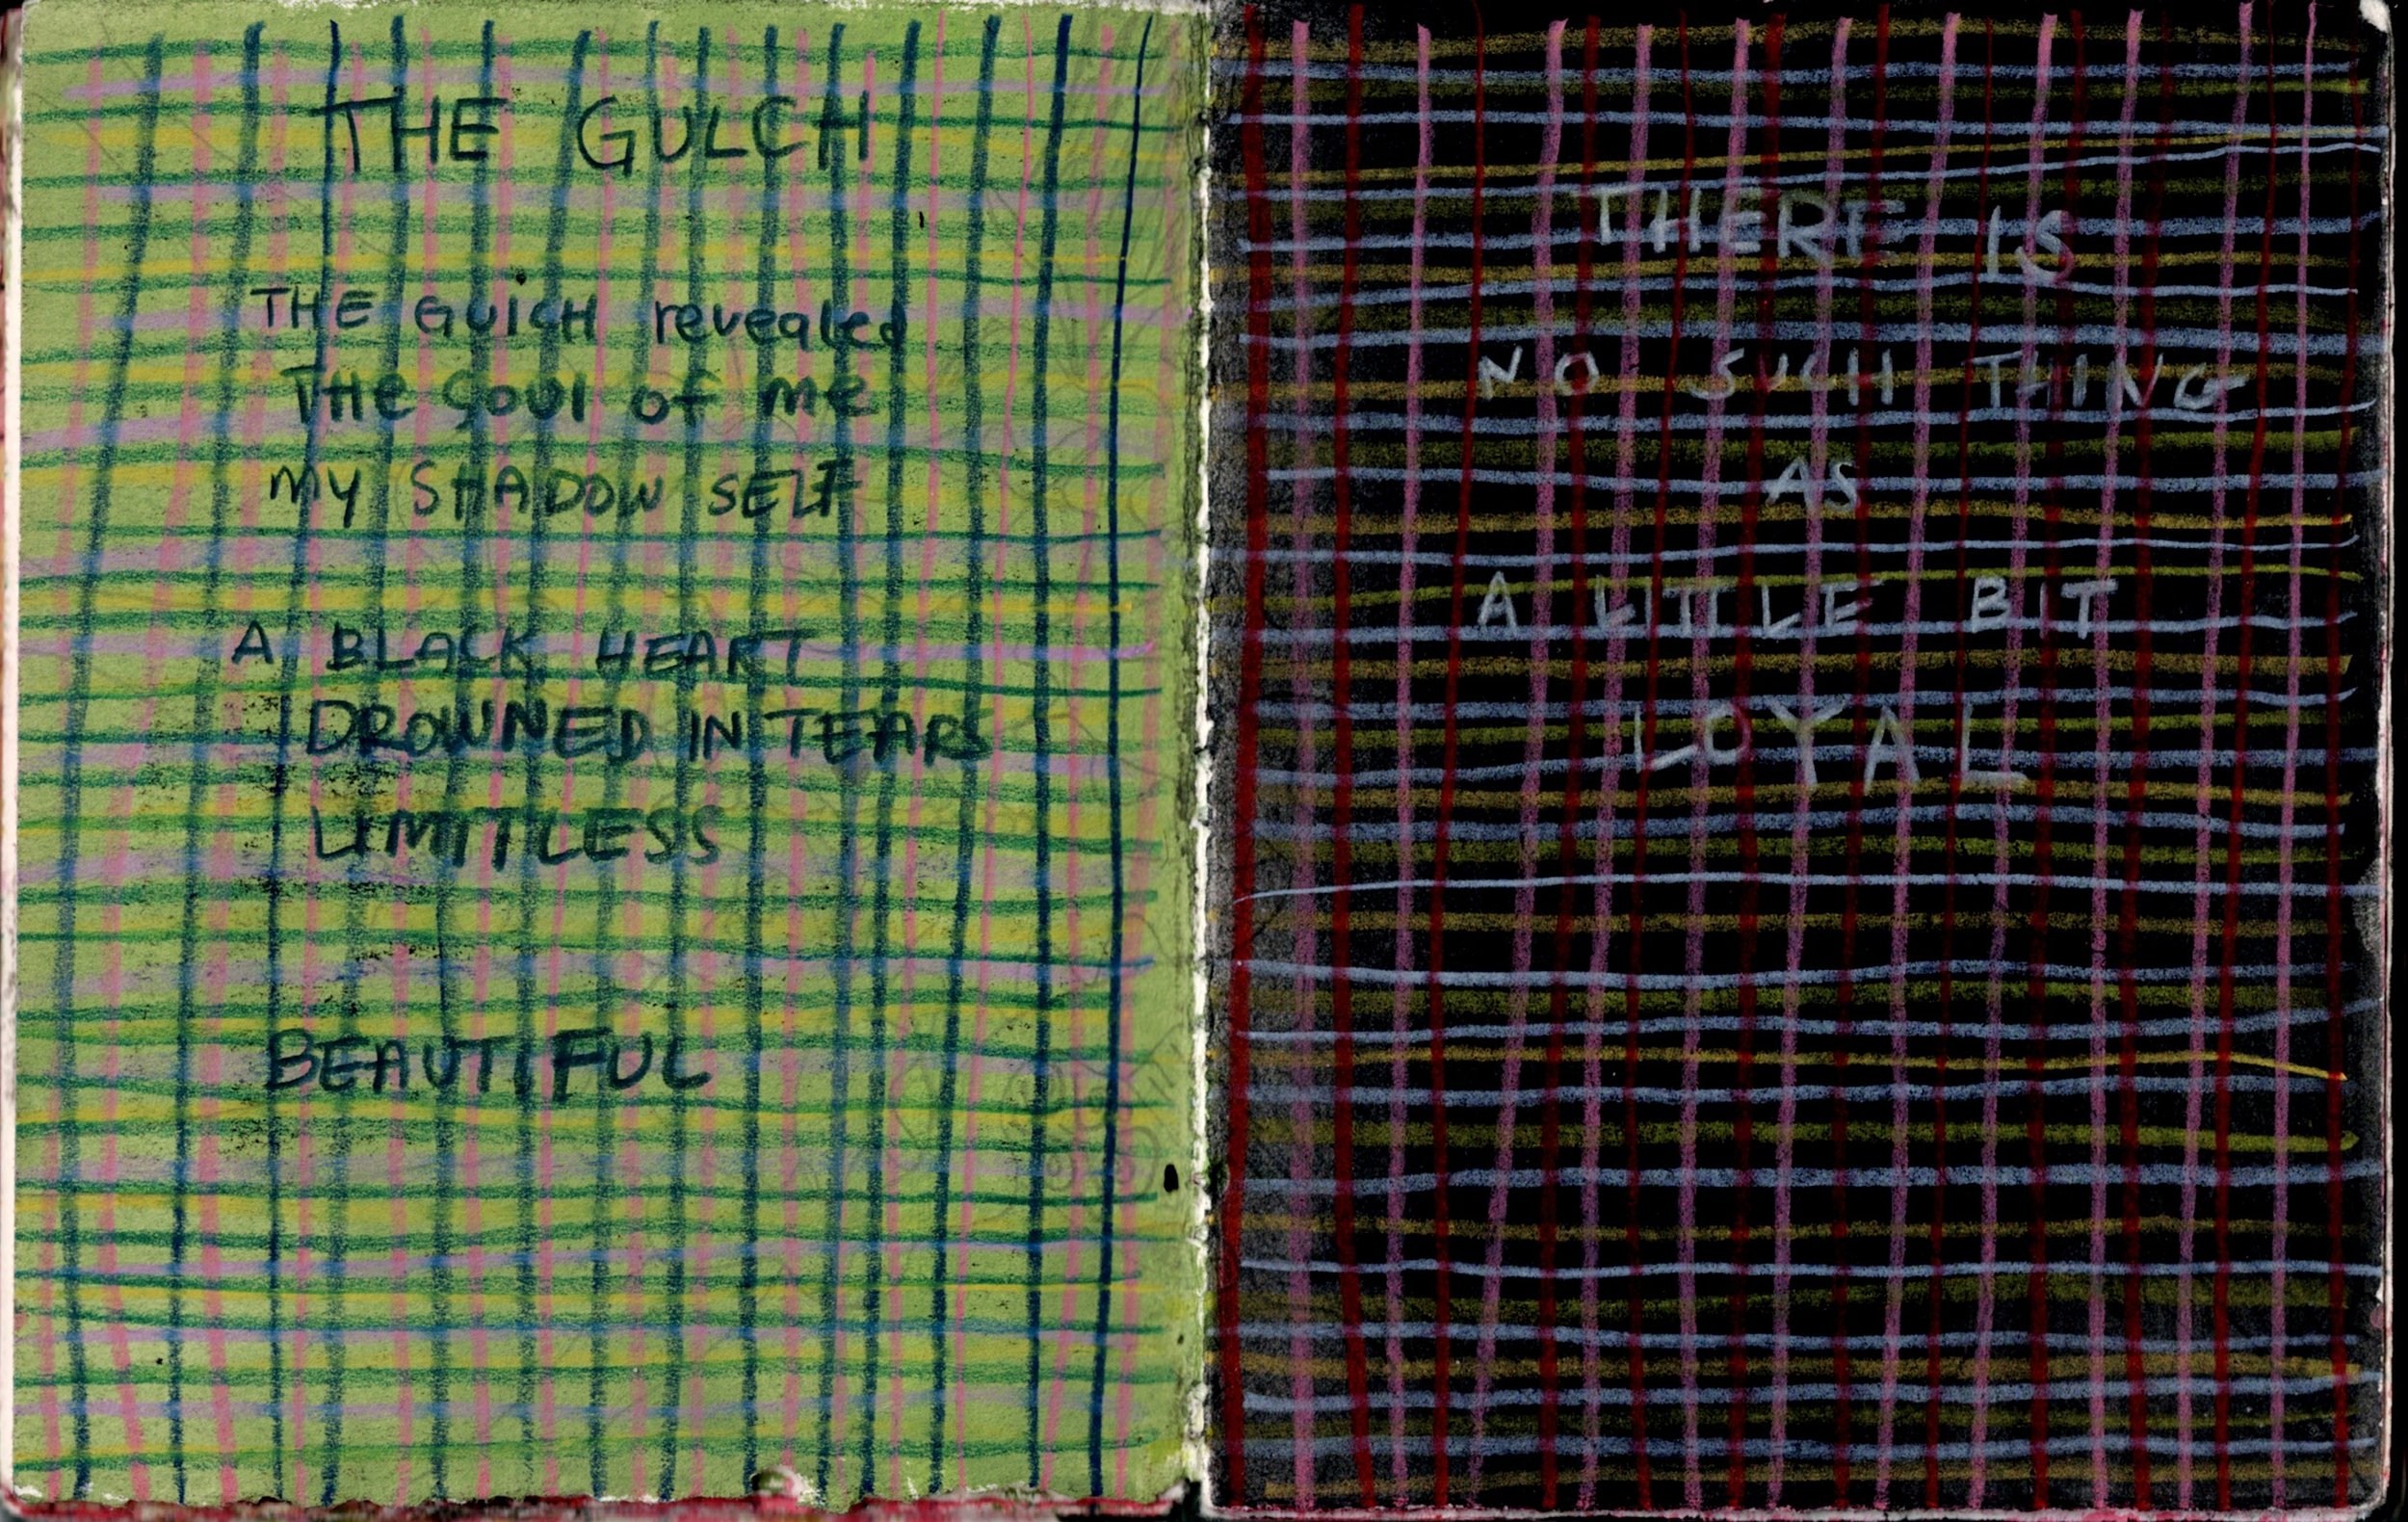 THE GULCH
THE GUlCH revealed
THe Soul of me
MY SHADOW SELF
A BLACK HEART
DROWNED IN TEARS
LIMITLESS
BEAUTIFUL
THERE IS
NO SUCH THING
AS
A LITTLE BIT
LOYAL